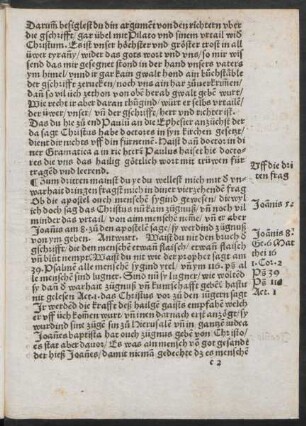 Darum̃ besiglest du din argumẽt von den richtern vber
die gschrifft gar übel mit Pilato vnd sinem vrtail wid̃
Christum. Es ist vnser höchster vnd gröster trost in all
üwer tyrãny/ wider das gots wort vnd vns/ so mir wis
send das mir gesegnet stond in der hand vnsers vaters
ym himel/ vnnd ir gar kain gwalt hond ain bůchstäble
der gschrifft zerrucken/ noch vns ain har
dañ so vil üch zethon von obẽ herab gwalt gebẽ wurt/
Wie recht ir aber daran thügind/ würt er selbs vrtailẽ/
der üwer/ vnser/ vñ der gschrifft/ herr vnd richter ist.
Das du hie zů end Pauli an die Ephesier anzühest der
da sagt Christus habe doctores in syn kirchen gesetzt/
dient dir nichts vff din fürnemẽ. Haißt dañ doctores in d̃
diner Gramatica a in re ic herr Paulus haisset die docto
res/ die vns das hailig götlich wort mit trüwen für
tragẽd vnd leerend.
¶ Zum dritten mainst du ye du wellest mich mit d̃ vn
warhait dringẽ fragst mich in diner vierzehende frag
Ob die apostel ouch menschẽ syind gewesen/ diewyl
ich doch sag das Christus nãm kain zügnuß vñ noch vil
minder das vrtail/ von aim menschẽ nim̃/ vñ er aber
Joañes am 8. zů den apostelẽ sage/ sy werdind zügnuß
von ym geben. Antwurt. Waist du nit den bruch d̃
gschrifft/ das menschẽ haissend etwan flaisch etwan flaisch
vñ blůt nempt. Waist du nit wie der prophet sagt am
39. Psalmẽ alle menschẽ syind ytel/ vñ ym 116. ps̃ al
le menschẽ sind lugner. Sind nũ sy lugner/ wie woltẽd
sy dañ d̃ warhait zügnuß vñ kuntschafft gebẽ/ hastu
nit gelesen Act. 1. das Christus vor zů den iügern sagt
Jr werdẽd die krafft deß hailgẽ gaists empfahẽ welch
er vff üch komẽ wurt/ vñ nen darnach erst anzögt/ sy
wurdind sine zügẽ sin zů Hierusalẽ vñ in gantzẽ iudea
Joañes baptista hat ouch zügnus gebẽ von Christo/
es stat aber dauor/ Es was ain mensch võ got gesandt
der hieß Joañes/ damit niemã gedechte dz es menschẽ
Vff die dri
ten frag
Joãnis 5.
Joãnis 8.
Ge. 6. Mat
thei 16
1. Cor. 2
Ps̃ 39
Ps̃ 116
Act. 1
c 2